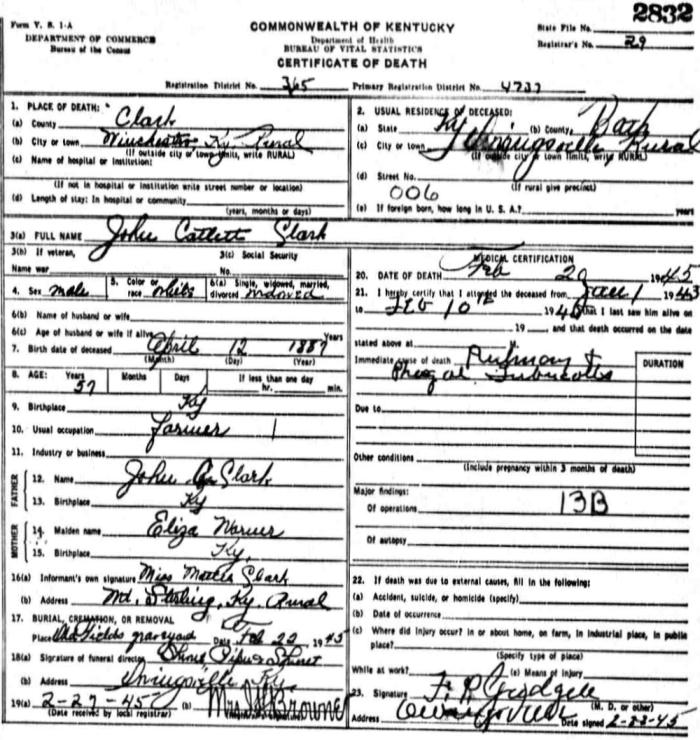 2832
Form V. S. 1-A
DEPARTMENT OF COMMERCE
Bureau of the Census
COMMONWEALTH OF KENTUCKY
Department of Health
BUREAU OF VITAL STATISTICS
CERTIFICATE OF DEATH
State File No.
Registrar's No. 29
Registration District No. 365 Primary Registration District No. 4737
1. PLACE OF DEATH:
(a) County Clark
(b) City or town Winchester Ky. Rural
(If outside city or town limits, write RURAL)
(c) Name of hospital or institution:
(If not in hospital or institution write street number or location)
(d) Length of stay: In hospital or community
(years, months or days)
2. USUAL RESIDENCE OF DECEASED:
(a) State Ky (b) County Bath
(c) City or town Rural
(If outside city or town limits, write RURAL)
(d) Street No.
006 (If rural give precinct)
(e) If foreign born, how long in U. S. A.? years
3(a) FULL NAME John Catlett Clark
3(b) If veteran,
Name war
3(c) Social Security
No.
4. Sex male 5. Color or race white 6(a) Single, widowed, married, divorced widowed
6(b) Name of husband or wife
6(c) Age of husband or wife if alive Years
7. Birth date of deceased April 12 1887
(Month) (Day) (Year)
8. AGE: Years Months Days If less than one day
57 hr. min.
9. Birthplace Ky
10. Usual occupation Farmer
11. Industry or business
FATHER
12. Name John Clark
13. Birthplace Ky
MOTHER
14. Maiden name Eliza Warner
15. Birthplace Ky.
16(a) Informant's own signature Miss Clark
(b) Address Mt. Sterling, Ky. Rural
17. BURIAL, CREMATION, OR REMOVAL
Place graveyard Date Feb 22 1945
18(a) Signature of funeral director
(b) Address Ky.
19(a) 2-27-45 (b) Mrs. Browne
(Date received by local registrar)
MEDICAL CERTIFICATION
20. DATE OF DEATH Feb 20 1945
21. I hereby certify that I attended the deceased from Jan 1 1943
to Feb 10 1945 that I last saw him alive on
19 , and that death occurred on the date
stated above at
Immediate cause of death
DURATION
Due to
Other conditions
(Include pregnancy within 3 months of death)
Major findings:
Of operations 13B
Of autopsy
22. If death was due to external causes, fill in the following:
(a) Accident, suicide, or homicide (specify)
(b) Date of occurrence
(c) Where did injury occur? In or about home, on farm, in industrial place, in public
place?
(Specify type of place)
While at work? (e) Means of injury
23. Signature
(M. D. or other)
Address Owingsville Date signed 2-23-45